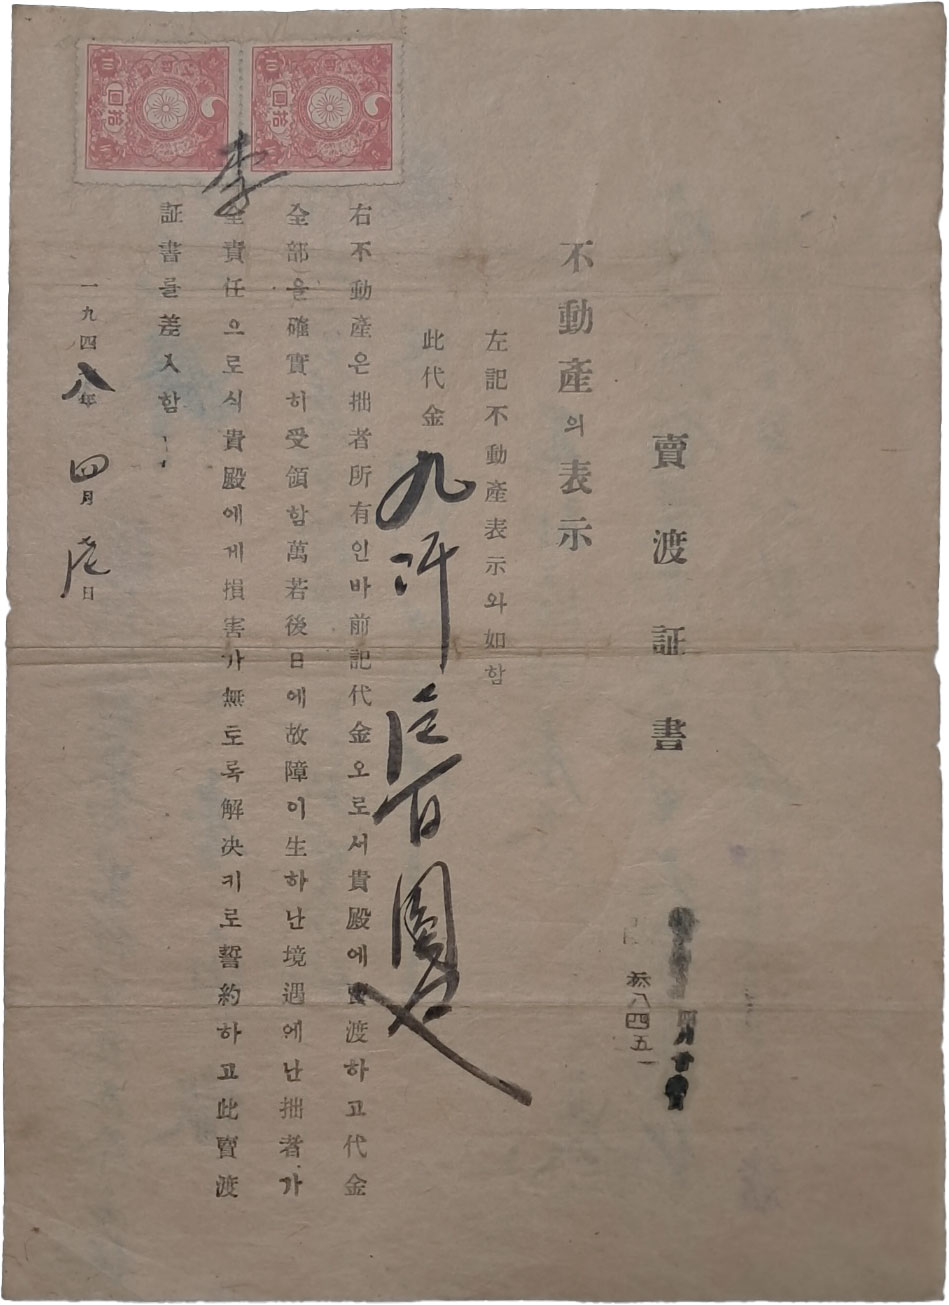 賣渡証書
叅八四五一
不動產의表示
左記不動產表示와如함
此代金九仟五百圓也
右不動產은拙者所有인바前記代金오로서貴殿에賣渡하고代金
全部을確實히受領함萬若後日에故障이生하난境遇에난拙者가
全責任으로식貴殿에게損害가無토록解決키로誓約하고此賣渡
証書를差入함
一九四八年 四月 日
李
拾圓
10
拾圓
10